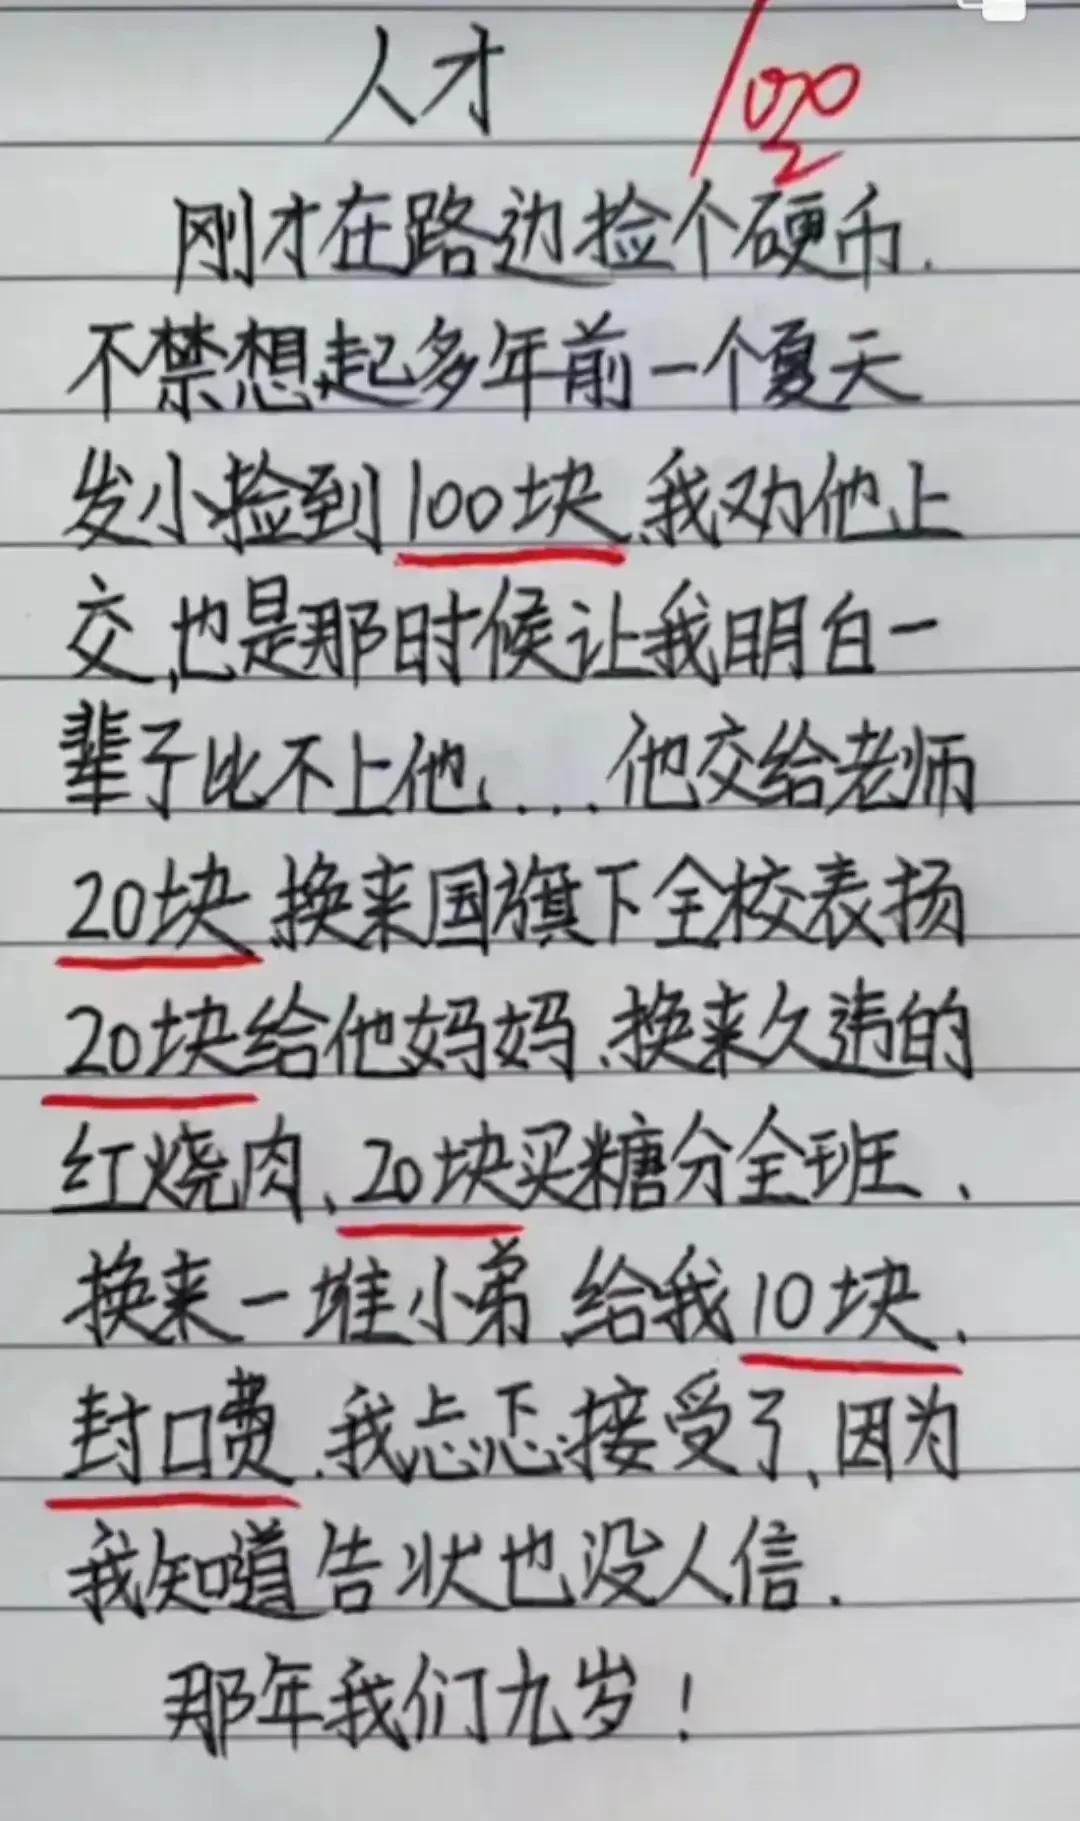 人才
100
刚才在路边捡个硬币.
不禁想起多年前一个夏天
发小捡到100块、我劝他上
交,也是那时候让我明白一
辈子比不上他....他交给老师
20块、换来国旗下全校表扬
20块给他妈妈、换来久违的
红烧肉、20块买糖分全班、
换来一堆小弟、给我10块、
封口费.我忐忑接受了、因为
我知道告状也没人信.
那年我们九岁!